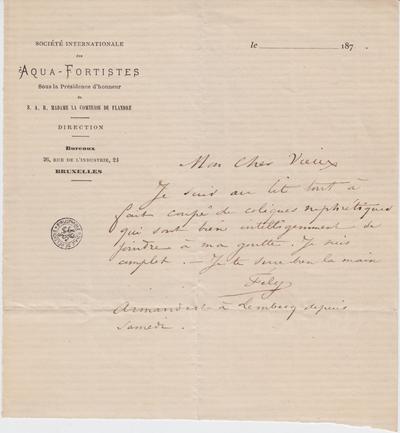 SOCIÉTÉ INTERNATIONALE
des
AQUA-FORTISTES
Sous la Présidence d'honneur
de
S. A. R. MADAME LA COMTESSE DE FLANDRE
DIRECTION
Bureaux
26, RUE DE L'INDUSTRIE, 24
BRUXELLES
le 187
Mon Cher Vieux
Je suis au lit tout à
fait coupé de coliques néphrétiques
qui sont bien intelligemment de
joindre à ma goutte. Je suis
complet. — Je te serre bien la main
Fély
Armand est à Lembecq depuis
Samedi.